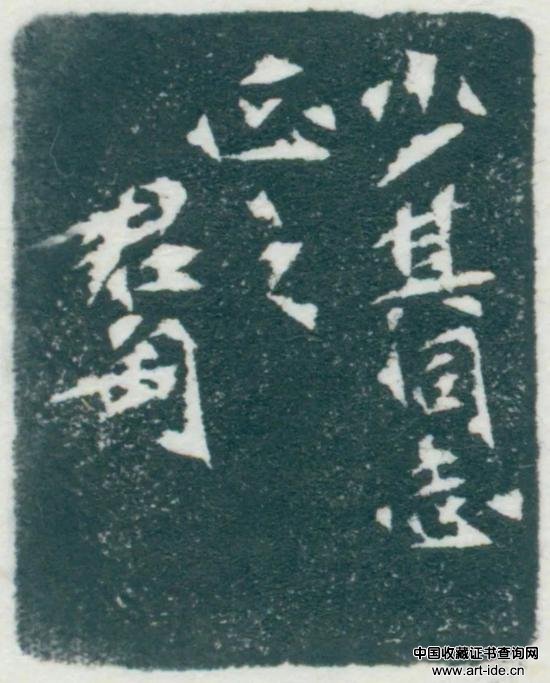 少其同志
正之
君匋
中国收藏证书查询网
www.art-ide.cn